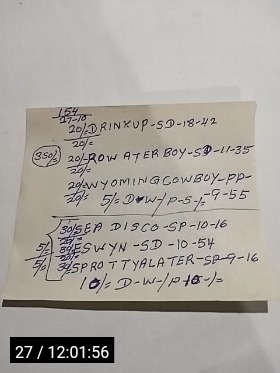 154
27-10
20/- DRINKUP-SD-18-42
20/=
350/5
20/- ROWATERBOY-SD-11-35
20/=
20/- WYOMINGCOWBOY-PP-
20/= 5/= D-W-/P-S-/=-9-55
30/5 SEA DISCO-SP-10-16
5/= 34/ESWYN-SD-10-54
5/= 34/SPROTTYALATER-SP-9-16
10/= D-W-/P10-/=
27 / 12:01:56